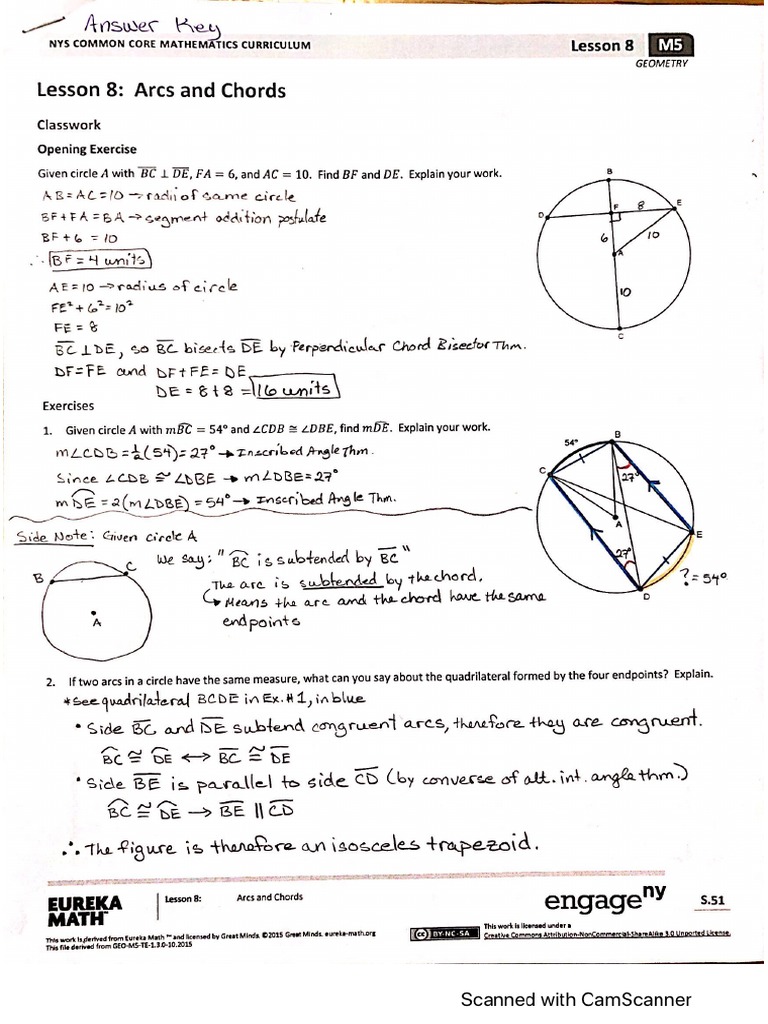 Answer Key
NYS COMMON CORE MATHEMATICS CURRICULUM
Lesson 8 M5
GEOMETRY
Lesson 8: Arcs and Chords
Classwork
Opening Exercise
Given circle A with B̅C̅ ⊥ D̅E̅, FA = 6, and AC = 10. Find BF and DE. Explain your work.
AB=AC=10 → radii of same circle
BF+FA=BA → segment addition postulate
BF+6 = 10
∴ BF = 4 units
AE=10 → radius of circle
FE²+6²=10²
FE = 8
B̅C̅ ⊥ D̅E̅, so B̅C̅ bisects D̅E̅ by Perpendicular Chord Bisector Thm.
DF=FE and DF+FE=DE
DE = 8+8 = 16 units
B
D
F
8
E
6
10
A
10
C
Exercises
1. Given circle A with mB͡C = 54° and ∠CDB ≅ ∠DBE, find mD͡E. Explain your work.
m∠CDB=½(54)=27° → Inscribed Angle Thm.
Since ∠CDB ≅ ∠DBE → m∠DBE=27°
mD͡E = 2(m∠DBE) = 54° → Inscribed Angle Thm.
54°
B
C
27°
A
E
27°
D
?=54°
Side Note: Given circle A
We say: "B͡C is subtended by B̅C̅"
The arc is subtended by the chord.
↳ Means the arc and the chord have the same
endpoints
B
C
A
2. If two arcs in a circle have the same measure, what can you say about the quadrilateral formed by the four endpoints? Explain.
*See quadrilateral BCDE in Ex.#1, in blue
• Side B̅C̅ and D̅E̅ subtend congruent arcs, therefore they are congruent.
B͡C ≅ D͡E ↔ B̅C̅ ≅ D̅E̅
• Side B̅E̅ is parallel to side C̅D̅ (by converse of alt. int. angle thm.)
B͡C ≅ D͡E → B̅E̅ || C̅D̅
∴ The figure is therefore an isosceles trapezoid.
EUREKA
MATH™
Lesson 8: Arcs and Chords
engage^ny
S.51
This work is derived from Eureka Math ™ and licensed by Great Minds. ©2015 Great Minds. eureka-math.org
This file derived from GEO-M5-TE-1.3.0-10.2015
cc BY-NC-SA
This work is licensed under a
Creative Commons Attribution-NonCommercial-ShareAlike 3.0 Unported License.
Scanned with CamScanner